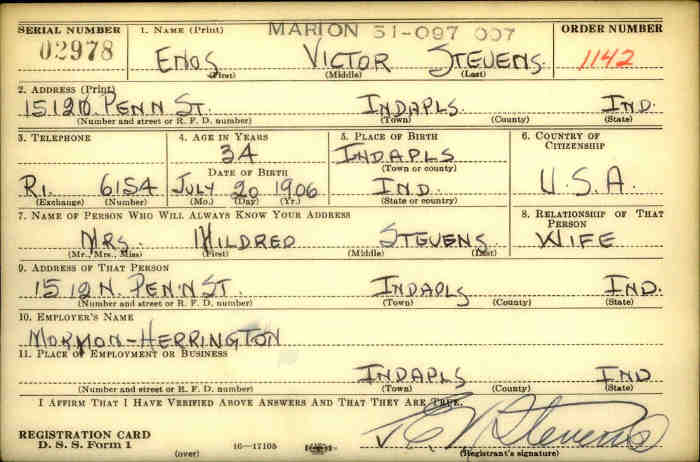 SERIAL NUMBER 1. NAME (Print) MARION 51-097 007 ORDER NUMBER
02978 ENOS VICTOR STEVENS 1142
(First) (Middle) (Last)
2. ADDRESS (Print)
1512 N. PENN ST. INDAPLS. IND.
(Number and street or R. F. D. number) (Town) (County) (State)
3. TELEPHONE 4. AGE IN YEARS 5. PLACE OF BIRTH 6. COUNTRY OF CITIZENSHIP
34 INDAPLS
DATE OF BIRTH (Town or county)
RI. 6154 JULY 20 1906 IND. U.S.A.
(Exchange) (Number) (Mo.) (Day) (Yr.) (State or country)
7. NAME OF PERSON WHO WILL ALWAYS KNOW YOUR ADDRESS 8. RELATIONSHIP OF THAT PERSON
MRS. MILDRED STEVENS WIFE
(Mr., Mrs., Miss) (First) (Middle) (Last)
9. ADDRESS OF THAT PERSON
1512 N. PENN ST. INDAPLS IND.
(Number and street or R. F. D. number) (Town) (County) (State)
10. EMPLOYER'S NAME
MORMON-HERRINGTON
11. PLACE OF EMPLOYMENT OR BUSINESS
INDAPLS IND
(Number and street or R. F. D. number) (Town) (County) (State)
I AFFIRM THAT I HAVE VERIFIED ABOVE ANSWERS AND THAT THEY ARE TRUE.
REGISTRATION CARD E V Stevens
D. S. S. Form 1 (over) 16-17105 (Registrant's signature)